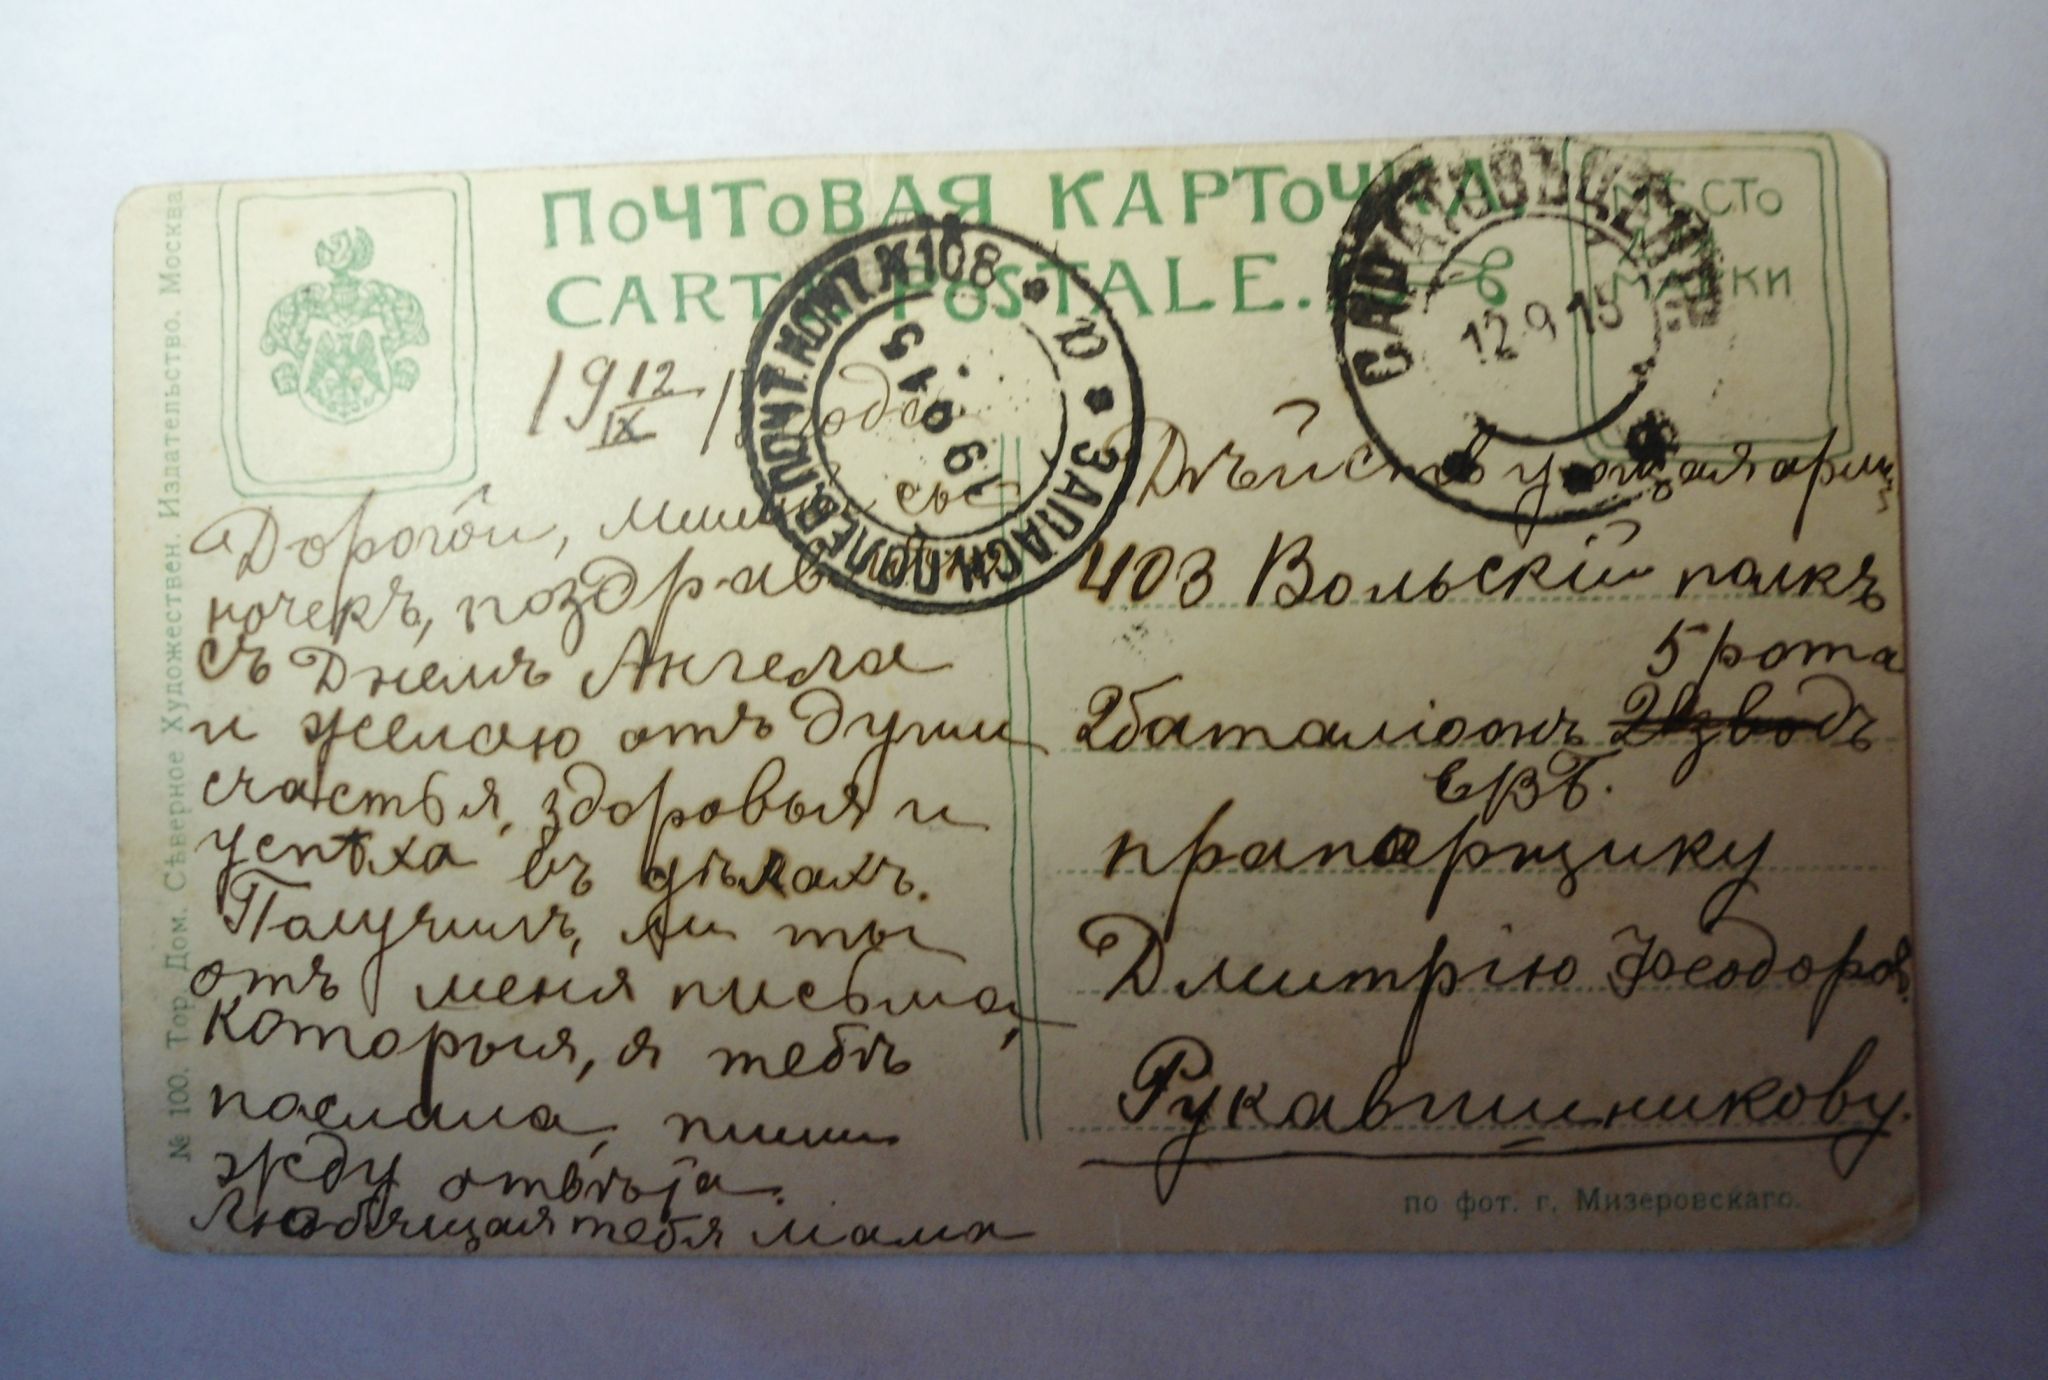 ПОЧТОВАЯ КАРТОЧКА.
CARTE POSTALE.
МѢСТО
ДЛЯ
МАРКИ
№ 100. Тор. Дом. Сѣверное Художествен. Издательство. Москва
ЗАПАСН. ПОЛЕВ. ПОЧТ. КОНТ. № 108
19 9 15
12 9 15
19 12/IX 1 года
Дорогой, милый сы
ночекъ, поздрав
съ Днемъ Ангела
и желаю отъ души
счастья, здоровья и
успѣха въ дѣлахъ.
Получилъ, ли ты
отъ меня письма,
которыя, я тебѣ
послала, пиши
жду отвѣта.
Любящая тебя мама
Дѣйствующая арми
403 Вольскій полкъ
5 рота
2 баталіонъ 2 взводъ
ЕВБ.
прапорщику
Дмитрію Феодоров.
Рукавишникову.
по фот. г. Мизеровскаго.